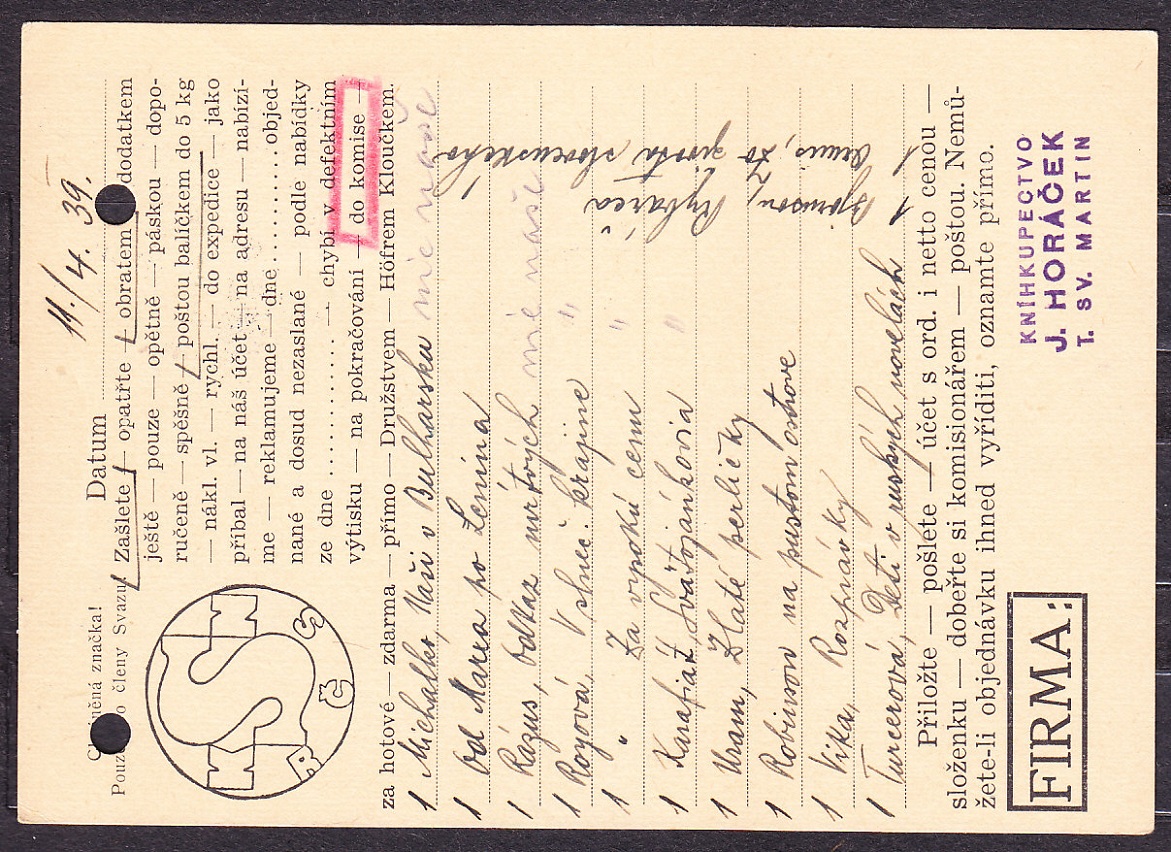 Chráněná značka!
Pouze pro členy Svazu
KMS
RČS
Datum 11./4. 39.
Zašlete — opatřte — obratem — dodatkem
ještě — pouze — opětně — páskou — dopo-
ručeně — spěšně — poštou balíčkem do 5 kg
— nákl. vl. — rychl. — do expedice — jako
příbal — na náš účet — na adresu — nabízí-
me — reklamujeme — dne .......... objed-
nané a dosud nezaslané — podle nabídky
ze dne .......... — chybí v defektním
výtisku — na pokračování — do komise —
za hotové — zdarma — přímo — Družstvem — Höfrem Kloučkem.
1 Michalko, Naši v Bulharsku nic naše
1 Od Marxa po Lenina
1 Rázus, Odkaz mŕtvych nié naše
1 Royová, V slneč. krajine "
1 " Za vysokú cenu "
1 Karafiát, Svätojánkovia "
1 Uram, Zlaté perličky
1 Robinson na pustom ostrove
1 Vika, Rozprávky
1 Turcerová, Deti v ruských novelách
1 Bjornson, Rybárča
1 zo života slovenského
Přiložte — pošlete — účet s ord. i netto cenou —
složenku — dobeřte si komisionářem — poštou. Nemů-
žete-li objednávku ihned vyříditi, oznamte přímo.
FIRMA:
KNÍHKUPECTVO
J. HORÁČEK
T. SV. MARTIN